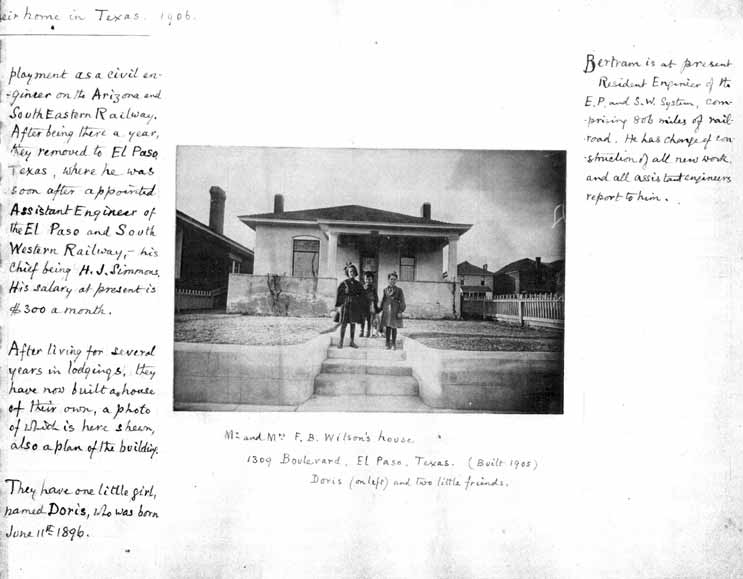 eir home in Texas. 1906.
ployment as a civil en-
-gineer on the Arizona and
South Eastern Railway.
After being there a year,
they removed to El Paso,
Texas, where he was
soon after appointed
Assistant Engineer of
the El Paso and South
Western Railway,- his
chief being H. J. Simmons.
His salary at present is
$300 a month.
After living for several
years in lodgings, they
have now built a house
of their own, a photo
of which is here shewn,
also a plan of the building.
They have one little girl,
named Doris, who was born
June 11th 1896.
Mr and Mrs F. B. Wilson's house
1309 Boulevard, El Paso, Texas. (Built 1905)
Doris (on left) and two little friends.
Bertram is at present
Resident Engineer of the
E.P. and S.W. System, com-
prising 806 miles of rail-
road. He has charge of con-
-struction of all new work,
and all assistant engineers
report to him.